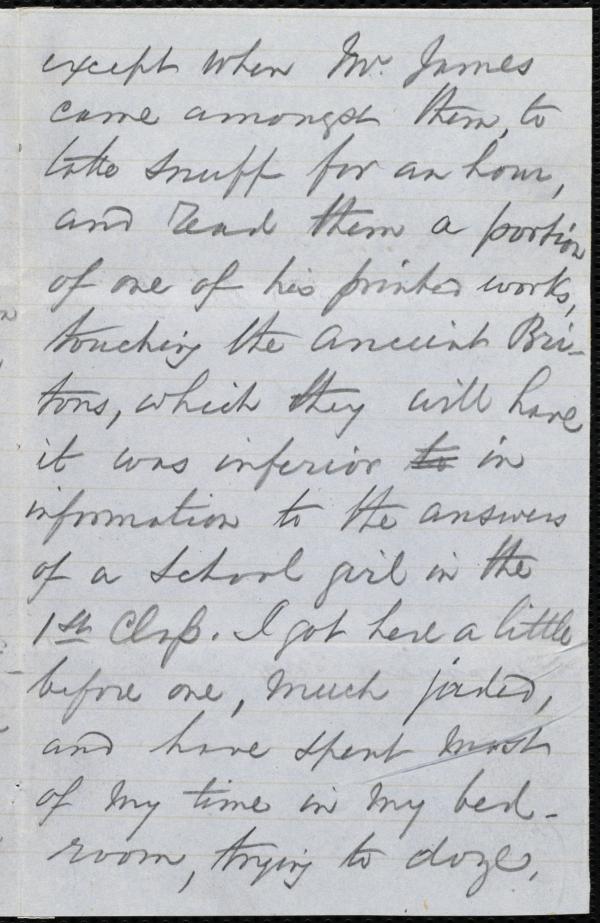 except when Mr. James
came amongst them, to
take snuff for an hour,
and read them a portion
of one of his printed works,
touching the ancient Bri-
tons, which they will have
it was inferior to in
information to the answers
of a school girl in the
1st Class. I got here a little
before one, much jaded,
and have spent most
of my time in my bed-
room, trying to doze,